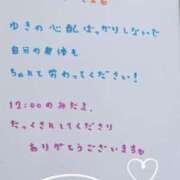 ゆきの心配ばっかりしないで
自分の身体も
ちゃんと労わってください!
12:00のみだよ。
たっくさんしてくださり
ありがとうございます